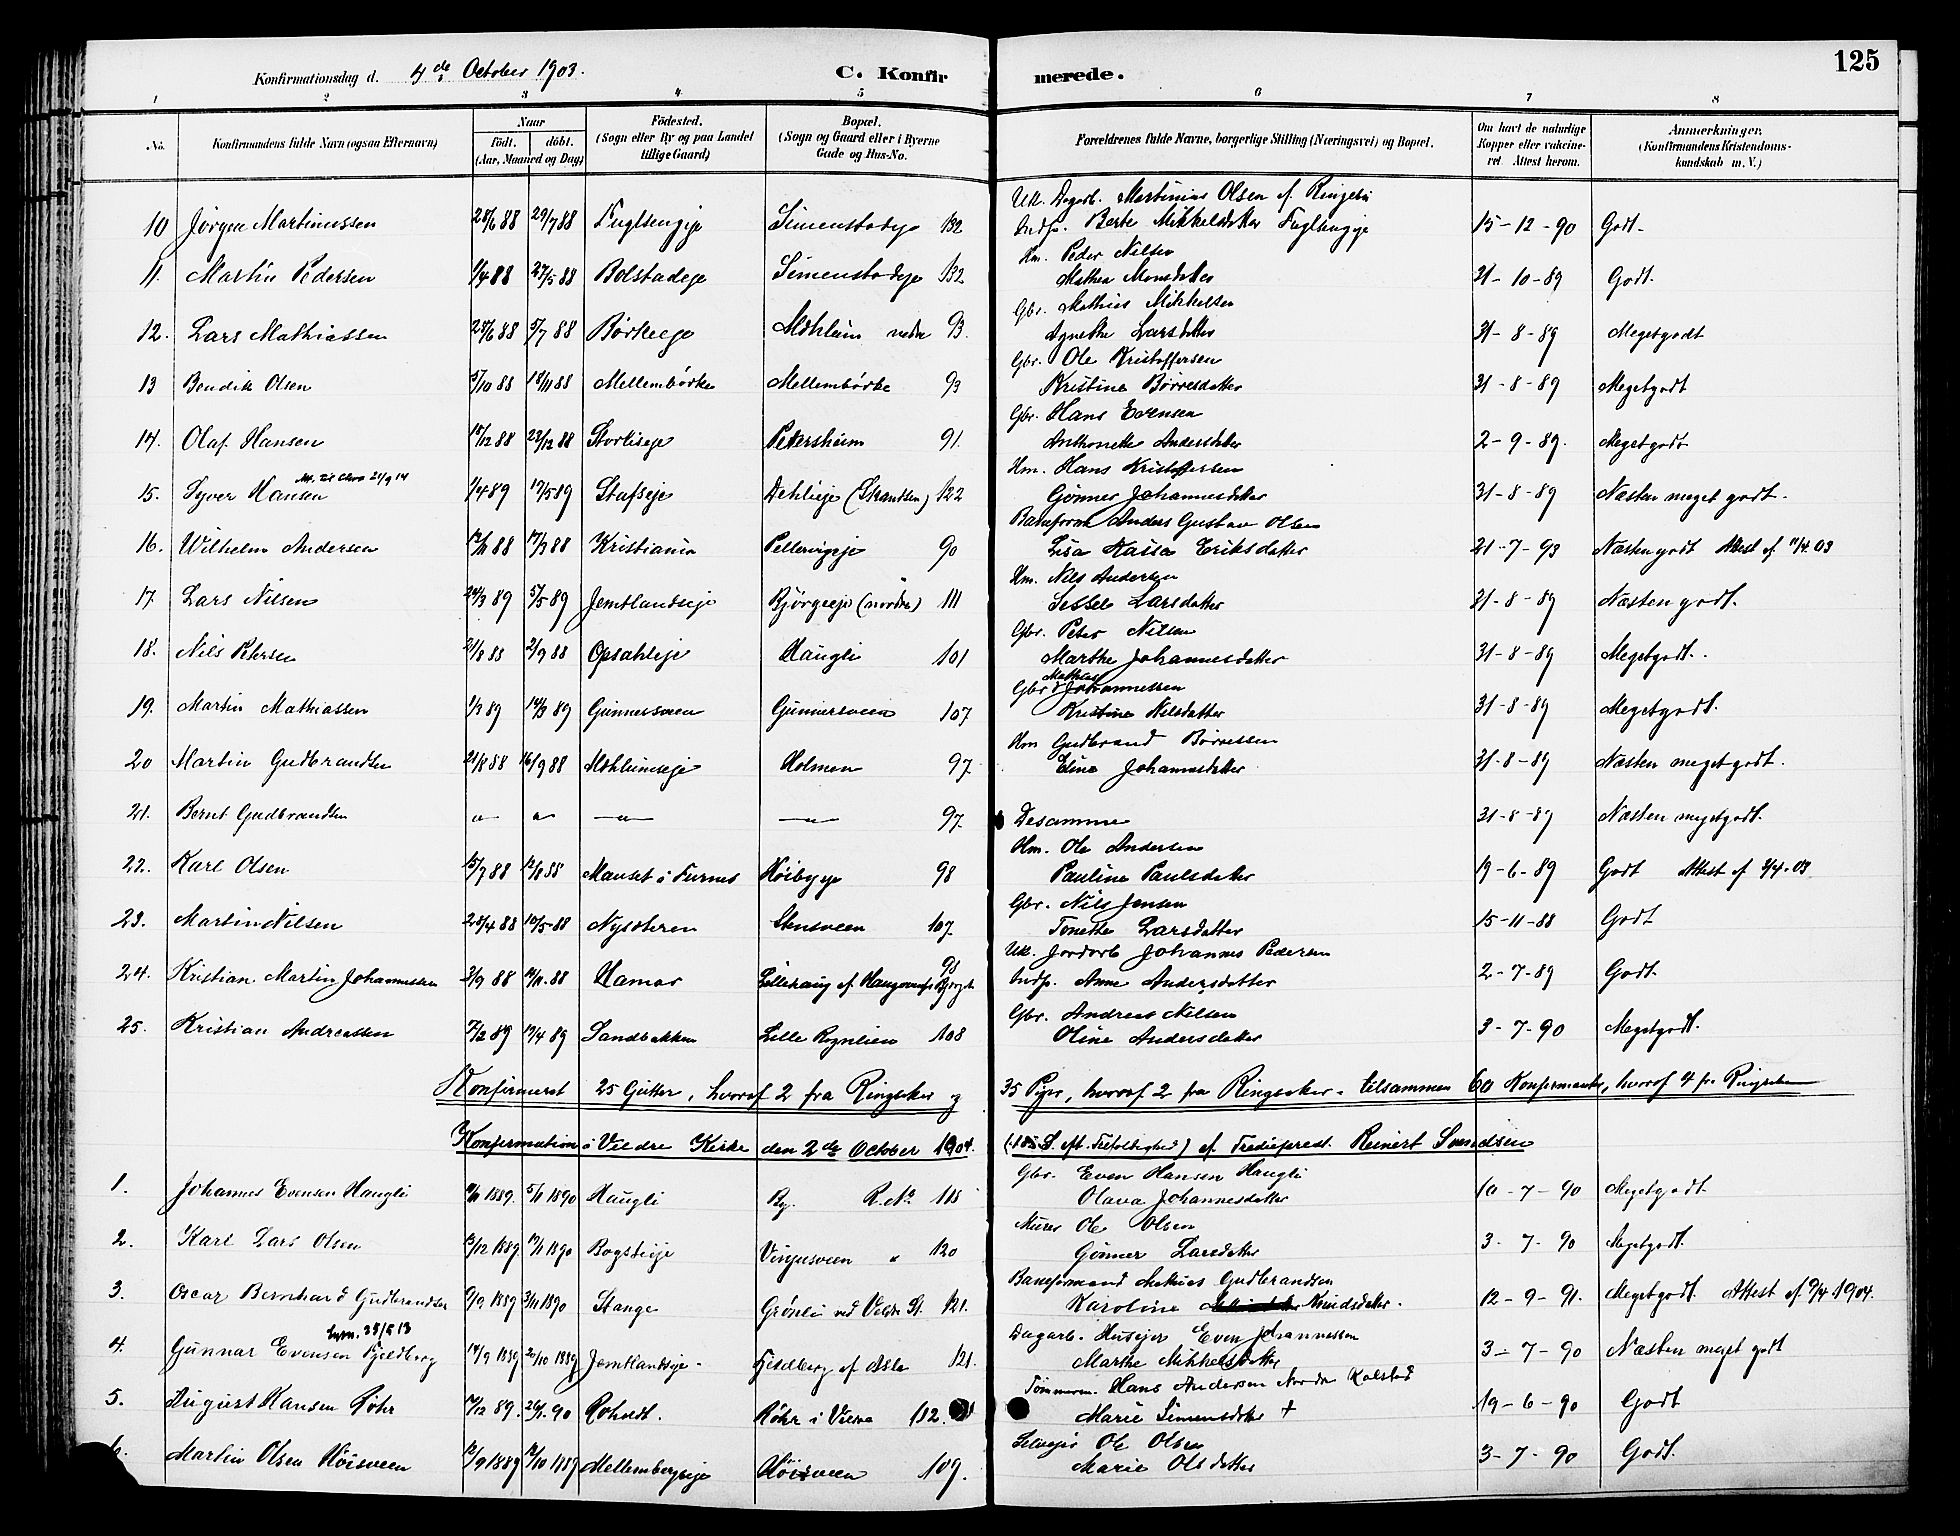 125
Konfirmationsdag d. 4de October 1903. C. Konfirmerede.
1 2 3 4 5 6 7 8
No. Konfirmandens fulde Navn (ogsaa Efternavn) Naar födt. döbt. (Aar, Maaned og Dag) Födested. (Sogn eller By og paa Landet tillige Gaard) Bopæl. (Sogn og Gaard eller i Byerne Gade og Hus-No. Forældrenes fulde Navne, borgerlige Stilling (Næringsvei) og Bopæl. Om havt de naturlige Kopper eller vakcineret. Attest herom. Anmærkninger. (Konfirmandens Kristendomskundskab m. V.)
Uk. Dagarb. Martinius Olsen af Ringebu
10 Jörgen Martinussen 28/6 88 29/7 88 Fuglsengeje Simenstadeje 132 Indp. Berte Mikkelsdatter Fuglsengeje 15-12-90 Godt.
Hm. Peder Nilsen
11. Martin Pedersen 1/4 88 27/5 88 Bolstadeje Simenstadeje 132 Mathea Monsdatter 31-10-89 Godt.
Gbr. Mathias Mikkelsen
12. Lars Mathiassen 24/6 88 5/7 88 Börkeeje Mæhlum nedre 93. Agnethe Larsdatter 31-8-89 Megetgodt
Gbr. Ole Kristoffersen
13 Bendik Olsen 5/10 88 18/11 88 Mellembörke Mellembörke 93 Kristine Börresdatter 31-8-89 Megetgodt
Gbr. Hans Evensen
14. Olaf Hansen 18/12 88 23/12 88 Storliseje Petersheim 91. Anthonette Andersdatter 2-9-89. Megetgodt
Hm. Hans Kristoffersen
15. Syver Hansen 1/4 89 19/5 89 Stafseje Dehlieje (Strandsen) 122 Gönner Johannesdatter 31-8-89 Næsten meget godt.
Baneform Anders Gustav Olsen
16. Wilhelm Andersen 88 88 Kristiania Pellervigeje 90 Lisa Kaisa Eriksdatter 21-7-93 Næsten godt Attest af 11/4 03
Hm. Nils Andersen
17. Lars Nilsen 24/3 89 5/5 89 Jemtlandseje Björgeeje (nordre) 111 Sessel Larsdatter 31-8-89 Næsten godt.
Gbr. Peter Nilsen
18. Nils Petersen 21/8 88 2/9 88 Opsahleje Haugli 101 Marthe Johannesdatter 31-8-89 Megetgodt.
Gbr Mathias Johannessen
19. Martin Mathiassen 1/3 89 14/3 89 Gunnersveen Gunnersveen 107. Kristine Nilsdatter 31-8-89 Megetgodt.
Hm Gudbrand Börressen
20 Martin Gudbrandsen 21/8 88 16/9 88 Mæhlumseje Holmen 97. Eline Johannesdatter 31-8-89 Næsten megetgodt.
21. Bernt Gudbrandsen —"— —"— —"— —"— 97. Desamme 31-8-89 Næsten megetgodt.
Hm. Ole Andersen
22. Karl Olsen 15/7 88 12/8 88 Manset i Furnes Höibyeje 98 Pauline Paulsdatter 19-6-89 Godt Attest af 2/4-03
Gbr. Nils Jensen
23. Martin Nilsen 28/4 88 10/5-88 Nyseteren Stensveen 107. Tonette Larsdatter 15-11-88 Godt
Uk. Jordarb Johannes Pedersen
24. Kristian Martin Johannessen 3/9 88 11/11-88 Hamar Lillehaug af Haugevenseje 98 Indp. Anne Andersdatter 2-7-89 Godt.
Gbr. Andreas Nilsen
25. Kristian Andreassen 7/12 89 14/4 89 Sandbakken Lille Rognlien 108 Oline Andersdatter 3-7-90 Megetgodt.
Konfirmeret 25 Gutter, hvoraf 2 fra Ringsaker og 35 Piger, hvoraf 2 fra Ringsaker - tilsammen 60 Konfirmanter, hvoraf 4 fr. Ringsaker
Konfirmation i Veldre Kirke den 2de October 1904. (18de S. eft. Trefoldighed) af Trediepræst Reinert Svendsen
Gbr. Even Hansen Haugli
1. Johannes Evensen Haugli 1889. 5/1 1890 Haugli Rg. R.No 118 Olava Johannesdatter 10-7-90 Megetgodt.
Murer Ole Olsen
2. Karl Lars Olsen 13/12 1889 19/1 1890 Bagstieje Vingersveen " 120 Gönner Larsdatter 3-7-90 Megetgodt.
Baneformand Gudbrandsen
3. Oscar Bernhard Gudbrandsen 9/9 1889 3/11 1890 Stange Grönli ved Veldre St. 121. Karoline Knudsdatter. 12-9-91. Megetgodt Attest af 9/4 1904.
Dagarb. Husejer Even Johannessen
4. Gunnar Evensen Fjeldberg 14/9 1889 20/10 1889 Jemtlandseje - Fjeldberg af Dæle 121. Marthe Mikkelsdatter 3-7-90 Næsten meget godt
Tömmerm. Hans Andersen Nordre Kolstad
5. August Hansen Röhr 14/12 89. 26/1. 90 Roholdt. Röhr i Veldre 112. Marie Simensdatter † 19-6-90 Godt
Selvejer Ole Olsen
Martin Olsen Höisveen 13/9 1889 13/10 1889 Mellembergseje Höisveen 109. Marie Olsdatter 3-7-90 Godt.